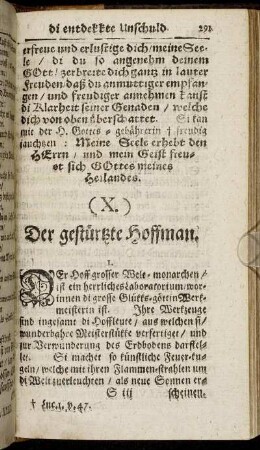 di entdekkte Unschuld 291
erfreue und erlustige dich / meine See-
le / di du so angenehm deinem
GOtt / zerbreite dich ganz in lauter
Freuden / daß du anmuhtiger empfan-
gen / und freudiger annehmen kanst
di Klarheit seiner Genaden / welche
dich von oben überschattet. Si kan
mit der H. Gottes-gebährerin † freudig
jauchzen: Meine Seele erhebt den
HErrn / und mein Geist freu-
et sich GOttes meines
Heilandes.
(X.)
Der gestürtzte Hoffman.
1.
DEr Hoff grosser Welt-monarchen /
ist ein herrliches laboratorium / wor-
innen di grosse Glükks-göttin Werk-
meisterin ist. Ihre Werkzeuge
sind ingesamt di Hoffleute / aus welchen si
wunderbahre Meisterstükke verfertiget / und
zur Verwunderung des Erdbodens darstel-
let. Si machet so künstliche Feuer-ku-
geln / welche mit ihren Flammen-strahlen um
di Welt zuerleuchten / als neue Sonnen er-
S iij scheinen.
† Luc. 1. v. 47.